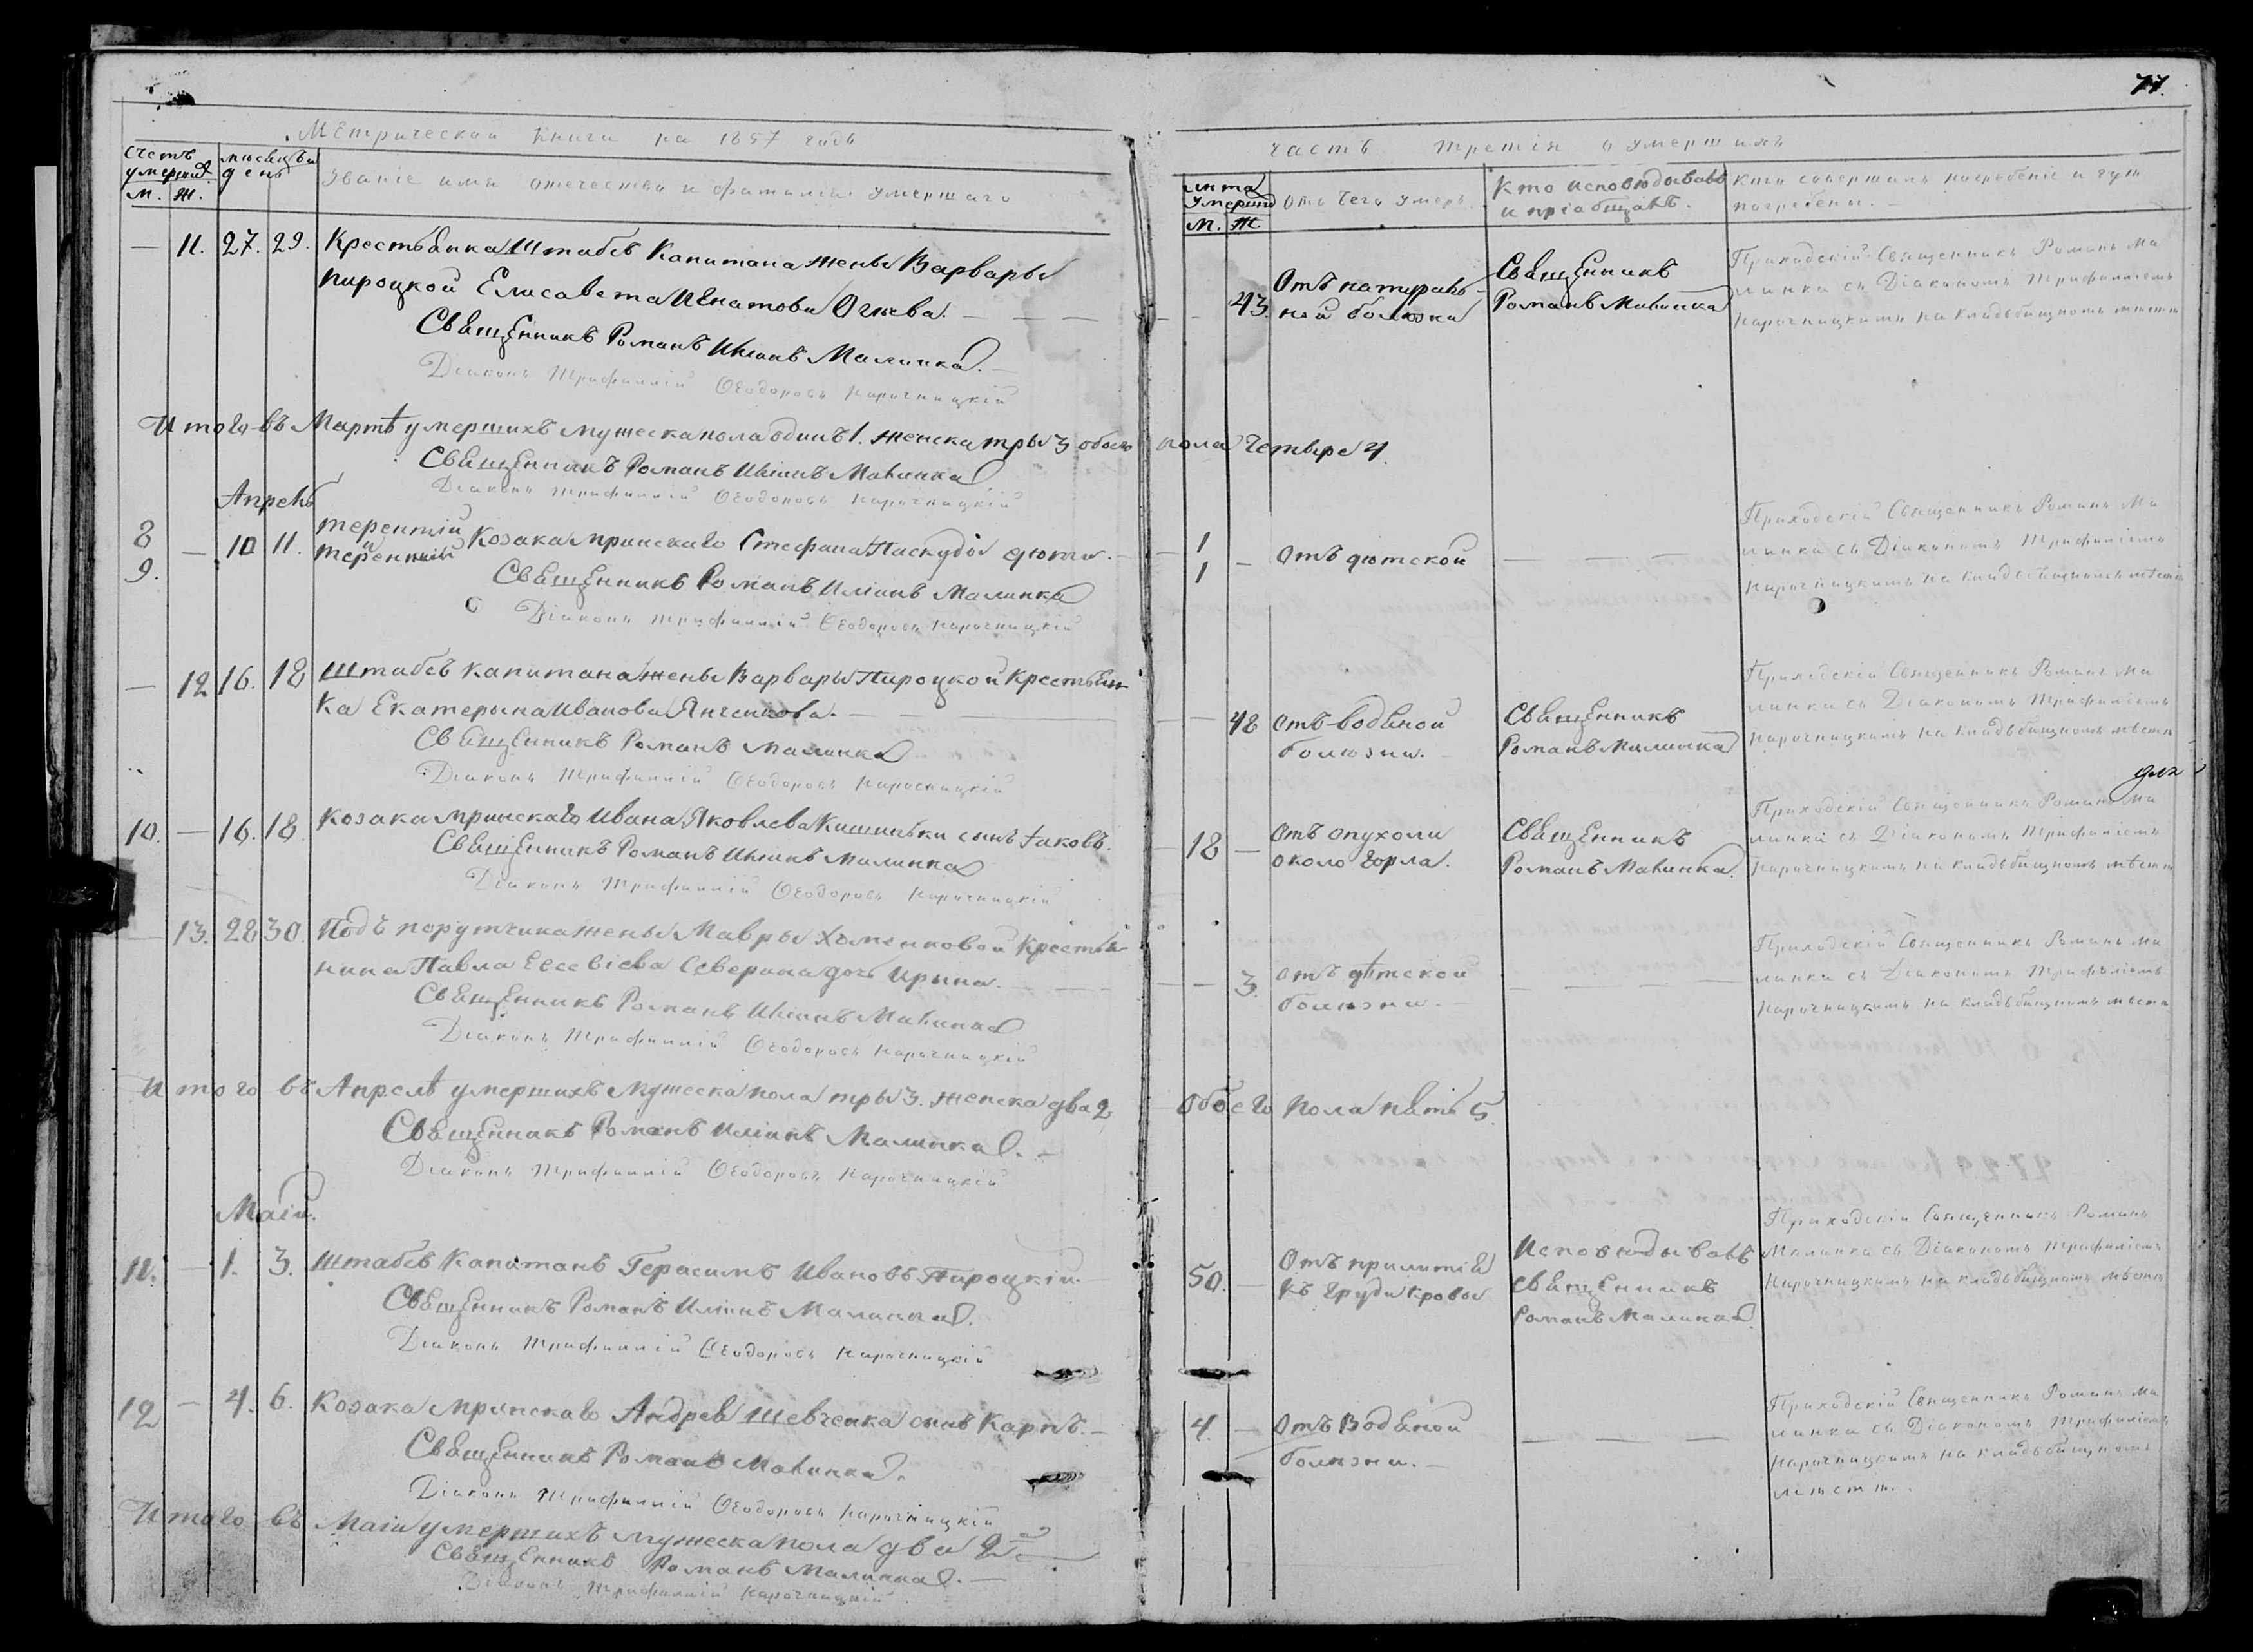 77.
Метрической Книги на 1857 годъ
Часть третія о умершихъ
Счетъ умершихъ
М. Ж.
мѣсяцъ и день
Званіе имя отечество и фамилія умершаго
лѣта умершаго
М. Ж.
Отъ чего умеръ
Кто исповѣдывалъ и пріобщалъ.
Кто совершалъ погребеніе и гдѣ погребены.
— 11. 27. 29. Крестьянка Штабсъ Капитана жены Варвары
Пироцкой Елисавета Игнатова Огіева.
Священникъ Романъ Иліинъ Малинка.
Діаконъ Трифиллій Ѳеодоровъ Нарочницкій
43. Отъ натураль-
ной болюзни
Священникъ
Романъ Малинка
Приходскій Священникъ Романъ Ма
линка съ Діакономъ Трифилліемъ
Нарочницкимъ на кладьбищномъ мѣстѣ
Итого въ Мартѣ умершихъ мужеска пола одинъ 1. женска тры 3 обоего пола четыре 4.
Священникъ Романъ Иліинъ Малинка
Діаконъ Трифиллій Ѳеодоровъ Нарочницкій
Апрель
8
9. — 10 11. Терентій
и
Терентій Козака мринскаго Стефана Паскуды дѣти.
Священникъ Романъ Иліинъ Малинка
Діаконъ Трифиллій Ѳеодоровъ Нарочницкій
1
1 — Отъ дѣтской
Приходскій Священникъ Романъ Ма
линка съ Діакономъ Трифилліемъ
Нарочницкимъ на кладьбищномъ мѣстѣ
— 12 16. 18 Штабсъ Капитана жены Варвары Пироцкой Крестьян-
ка Екатерына Иванова Янченкова.
Священникъ Романъ Малинка
Діаконъ Трифиллій Ѳеодоровъ Нарочницкій
48 Отъ водяной
болюзни.
Священникъ
Романъ Малинка
Приходскій Священникъ Романъ Ма
линка съ Діакономъ Трифилліемъ
Нарочницкимъ на кладьбищномъ мѣстѣ
10. — 16. 18. Козака мринскаго Ивана Яковлева Кишиньки синъ Іаковъ.
Священникъ Романъ Иліинъ Малинка
Діаконъ Трифиллій Ѳеодоровъ Нарочницкій
18 — Отъ опухоли
около горла.
Священникъ
Романъ Малинка.
Приходскій Священникъ Романъ Ма
линка съ Діакономъ Трифилліемъ
Нарочницкимъ на кладьбищномъ мѣстѣ
— 13. 28 30. Подъ порутчика жены Мавры Хоменковой Крестья
нина Павла Евсевіева Северина дочь Ирына.
Священникъ Романъ Иліинъ Малинка
Діаконъ Трифиллій Ѳеодоровъ Нарочницкій
— 3. Отъ дѣтской
болюзни.
Приходскій Священникъ Романъ Ма
линка съ Діакономъ Трифилліемъ
Нарочницкимъ на кладьбищномъ мѣстѣ
Итого въ Апрелѣ умершихъ мужеска пола тры 3. женска два 2 обоего пола пять 5.
Священникъ Романъ Иліинъ Малинка.
Діаконъ Трифиллій Ѳеодоровъ Нарочницкій
Маій.
11. — 1. 3. Штабсъ Капитанъ Герасимъ Ивановъ Пироцкій.
Священникъ Романъ Иліинъ Малинка.
Діаконъ Трифиллій Ѳеодоровъ Нарочницкій
50. — Отъ прилитія
къ груди кровы
Исповюдывалъ
Священникъ
Романъ Малинка.
Приходскій Священникъ Романъ
Малинка съ Діакономъ Трифилліемъ
Нарочницкимъ на кладьбищномъ мѣстѣ
12 — 4. 6. Козака мринскаго Андрея Шевченка синъ Карпъ.
Священникъ Романъ Малинка.
Діаконъ Трифиллій Ѳеодоровъ Нарочницкій
4 — Отъ Водяной
болюзни.
Приходскій Священникъ Романъ Ма
линка съ Діакономъ Трифилліемъ
Нарочницкимъ на кладьбищномъ
мѣстѣ.
Итого въ Маіи умершихъ мужеска пола два 2
Священникъ Романъ Малинка.
Діаконъ Трифиллій Нарочницкій